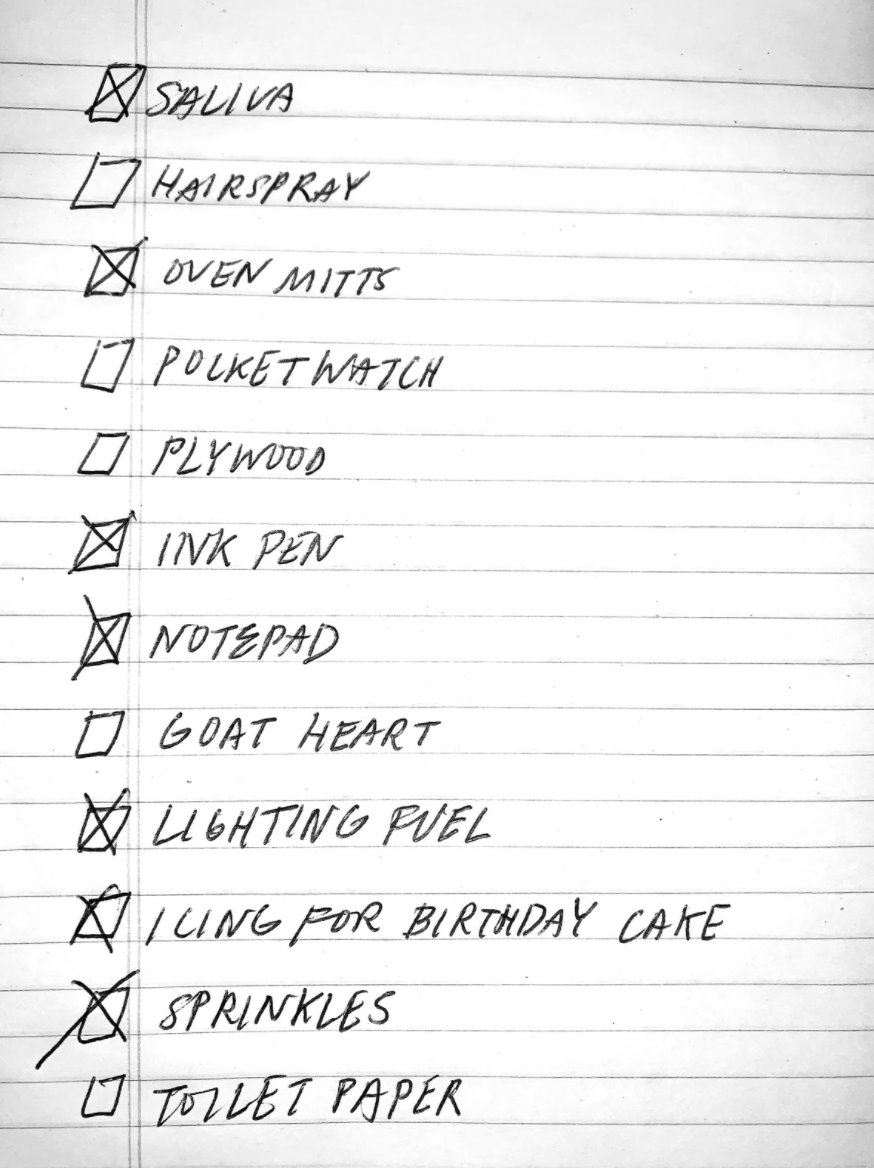 ☒ SALIVA
☐ HAIRSPRAY
☒ OVEN MITTS
☐ POCKET WATCH
☐ PLYWOOD
☒ INK PEN
☒ NOTEPAD
☐ GOAT HEART
☒ LIGHTING FUEL
☒ ICING FOR BIRTHDAY CAKE
☒ SPRINKLES
☐ TOILET PAPER